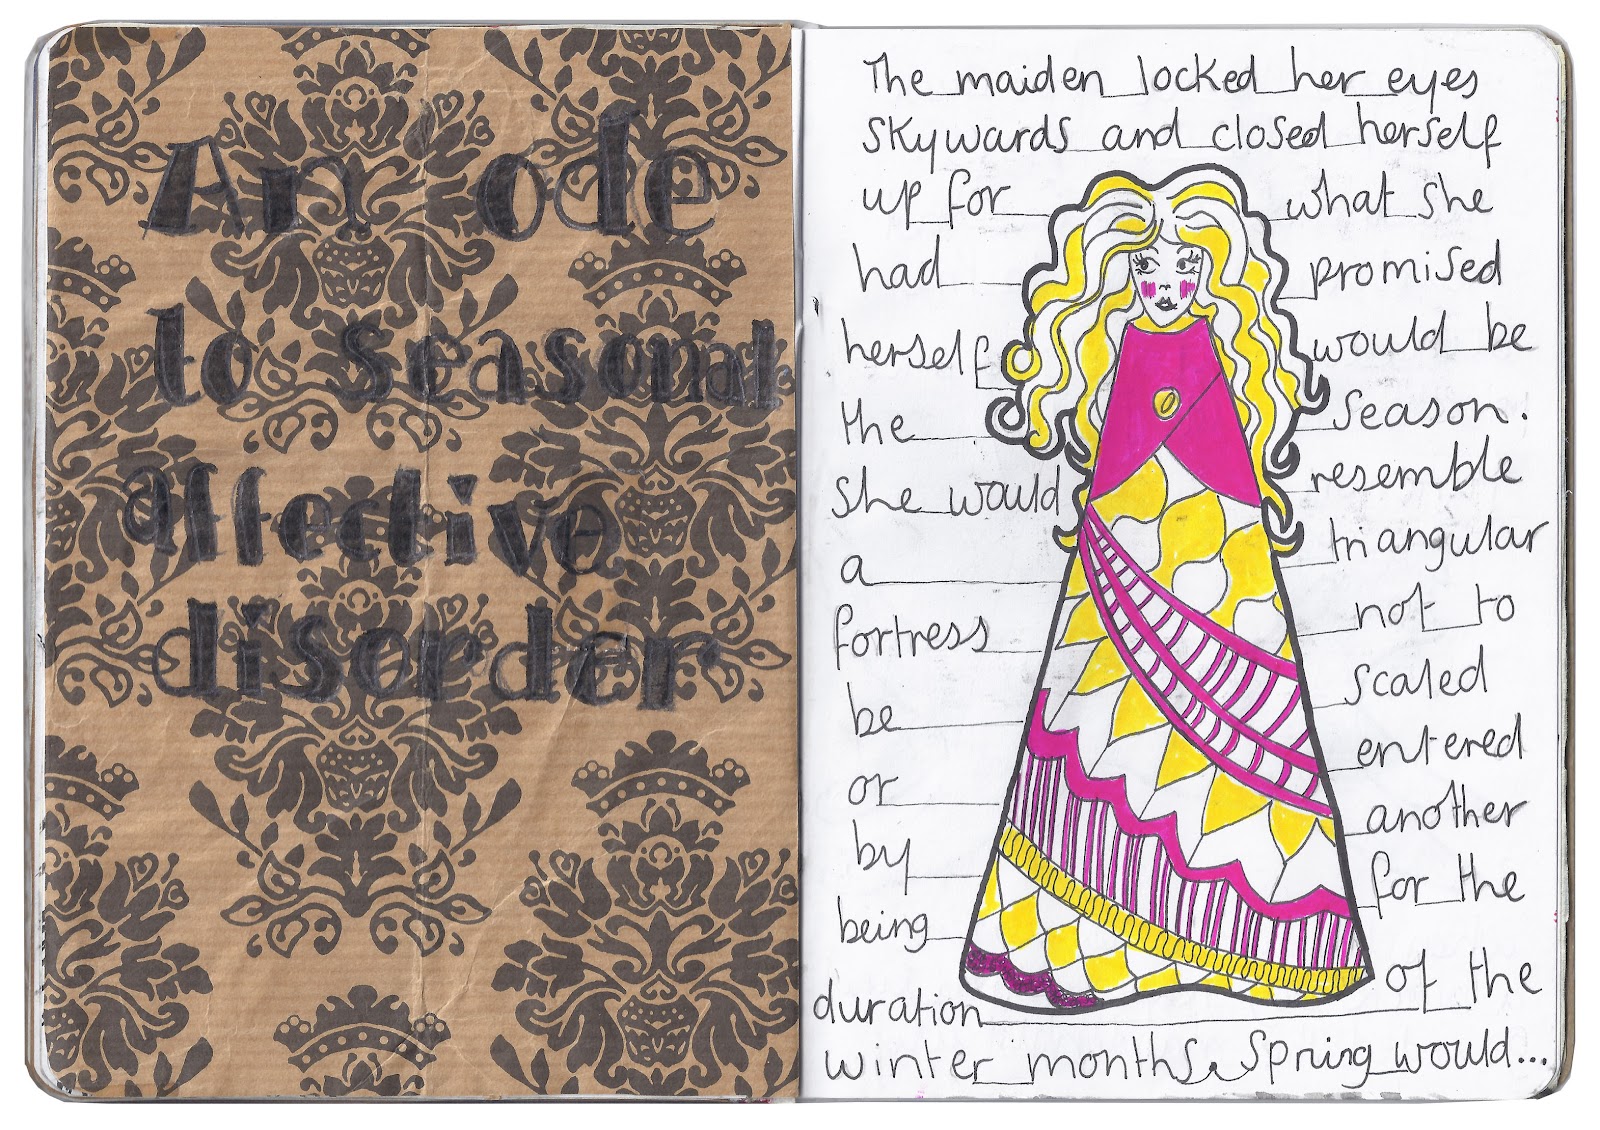 An ode
to seasonal
affective
disorder
The maiden locked her eyes
skywards and closed herself
up for what she
had promised
herself would be
the season.
She would resemble
a triangular
fortress not to
be scaled
or entered
by another
being for the
duration of the
winter months. Spring would...